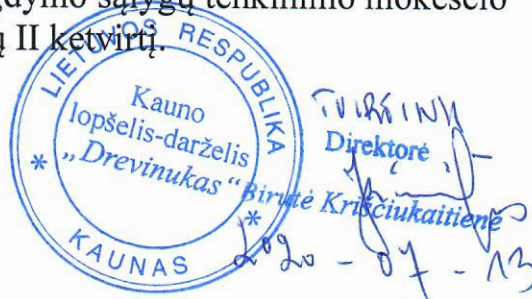 gdymo sąlygų tenkinimo mokesčio
ų II ketvirtį.
LIETUVOS RESPUBLIKA
Kauno
lopšelis-darželis
„Drevinukas“
* KAUNAS *
TVIRTINU
Direktorė
Birutė Kriščiukaitienė
2020-07-13